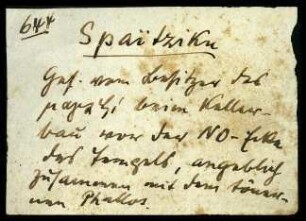 644
Spaïtziku
Gef. vom Besitzer des
magazi beim Keller-
bau vor der NO-Ecke
des Tempels, angeblich
zusammen mit dem töner-
nen Phallos.